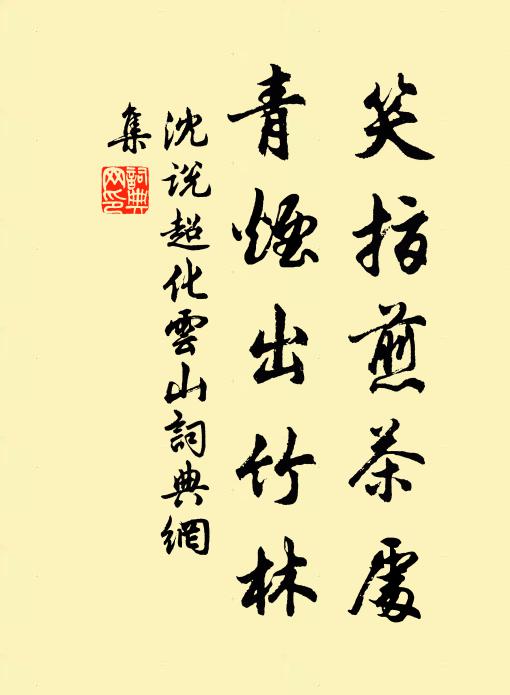 笑指煎茶處
青煙出竹林
沈説超化雲山詞典網
集
詞典
网印